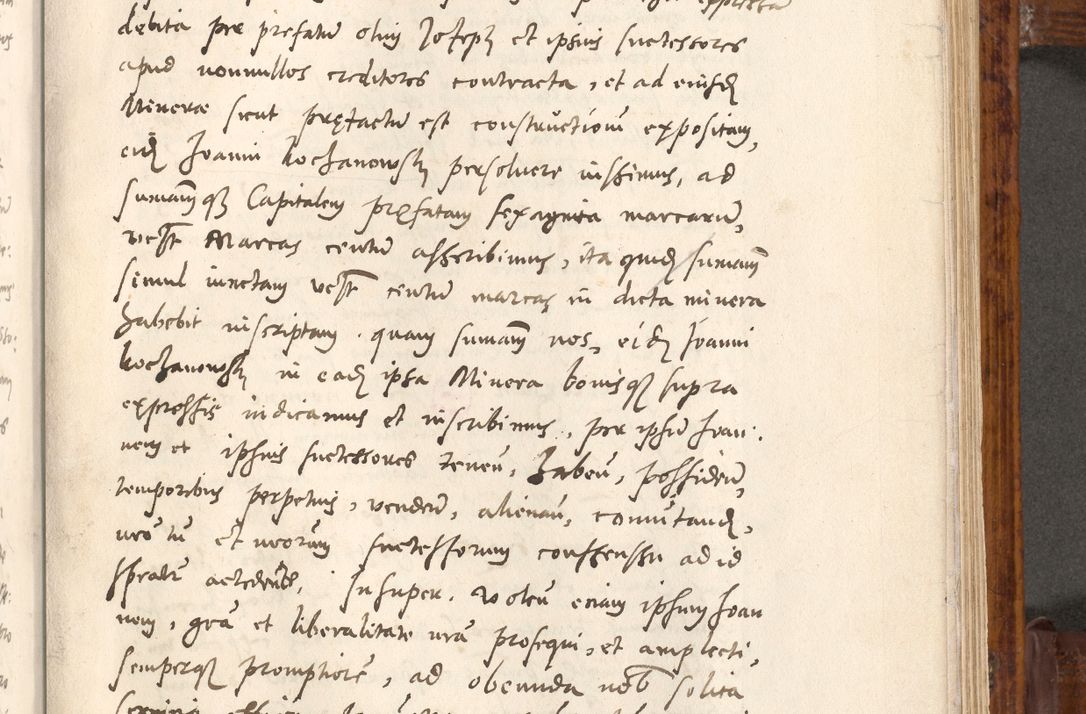 debita per prefatum olim Joseph et ipsius successores
apud nonnullos creditores contracta, et ad eiusd
Minerae sicut prętactũ est constructionẽ expositam,
eid Joanni Kochanowsky persolvere iussimus, ad
sumamq Capitalem pręfatam sexaginta marcarũ,
Marcas centũ asscribimus, ita quid sumam
simul iunctam centũ marcas in dicta minera
habebit inscriptam. quam sumam nos, eid Joanni
Kochanowsky in ead ipsa Minera bonisq supra
expressis indicamus et inscribimus, per ipsũ Joan.
nem et ipsius successores tenen, haben, possiden,
temporibus perpetuis, venden, alienan, comutand,
nro tũ et nrorum successorum consensu ad id
spealr accedente, Insuper. Volen eciam ipsum Joan
nem, gra et liberalitate nra prosequi, et amplecti,
semperq promptiorẽ, ad obeunda nob solita